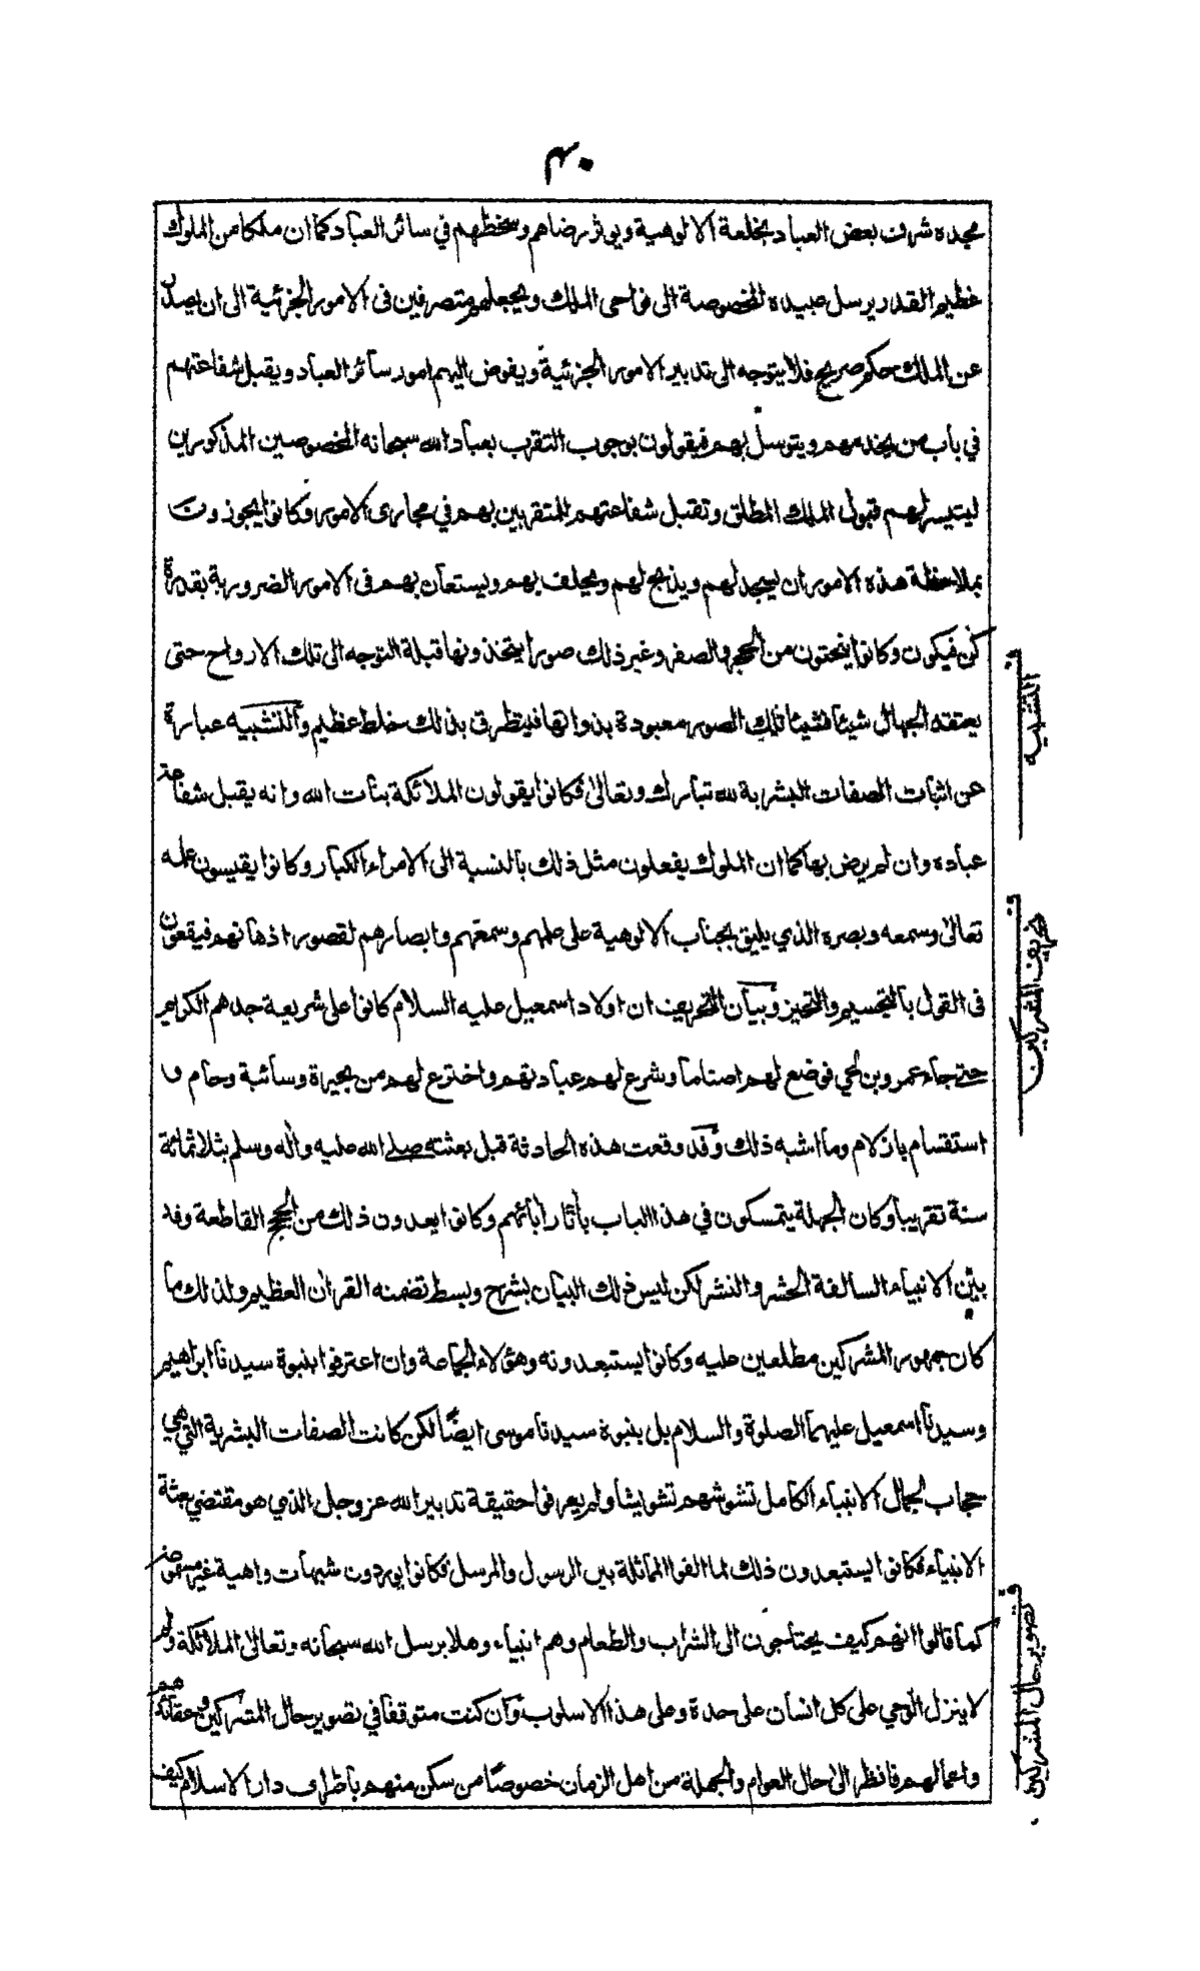 ٤٠
مجده شرف بعض العباد بخلعة الالوهية ويوثر رضاهم وسخطهم في سائر العباد كما ان ملكا من الملوك
عظيم القدر يرسل عبيده المخصوصة الى نواحى الملك ويجعلهم متصرفين فى الامور الجزئية الى ان يصدر
عن الملك حكم صريح فلا يتوجه الى تدبير الامور الجزئية ويفوض اليهم امور سائر العباد ويقبل شفاعتهم
في باب من يخدمهم ويتوسل بهم فيقولون بوجوب التقرب بعباد الله سبحانه المخصوصين المذكورين
ليتيسر لهم قبول الملك المطلق وتقتبل شفاعتهم المتقربين بهم في مجارى الامور وكانوا يجوزون
بملاحظة هذه الامور ان يسجد لهم ويذبح لهم ويحلف بهم ويستعان بهم فى الامور الضرورية بقدرة
كن فيكون وكانوا ينحتون من الحجر والصفر وغير ذلك صورا يتخذونها قبلة التوجه الى تلك الارواح حتى
يعتقد الجهال شيئا فشيئا تلك الصور معبودة بذواتها فيتطرق بذلك خلط عظيم والتشبيه عبارة
عن اثبات الصفات البشرية لله تبارك وتعالى فكانوا يقولون الملائكة بنات الله وانه يقبل شفاعة
عباده وان لم يرض بها كما ان الملوك يفعلون مثل ذلك بالنسبة الى الامراء الكبار وكانوا يقيسون علمه
تعالى وسمعه وبصره الذي يليق بجناب الالوهية على علمهم وسمعهم وابصارهم لقصور اذهانهم فيقعون
فى القول بالتجسيم والتحيز وبيان التحريف ان اولاد اسمعيل عليه السلام كانوا على شريعة جدهم الكرام
حتى جاء عمرو بن لحي فوضع لهم اصناما وشرع لهم عبادتهم واخترع لهم من بحيرة وسائبة وحام و
استقسام بازلام وما اشبه ذلك وقد وقعت هذه الحادثة قبل بعثته صلى الله عليه واله وسلم بثلاثمائة
سنة تقريبا وكان الجهلة يتمسكون في هذا الباب بآثار آبائهم وكانوا يعدون ذلك من الحجج القاطعة وقد
بين الانبياء السالفة الحشر والنشر لكن ليس ذلك البيان بشرح وبسط تضمنه القران العظيم ولذلك ما
كان جمهور المشركين مطلعين عليه وكانوا يستبعدونه وهؤلاء الجماعة وان اعترفوا بنبوة سيدنا ابراهيم
وسيدنا اسمعيل عليهما الصلوة والسلام بل بنبوة سيدنا موسى ايضًا لكن كانت الصفات البشرية التي هي
حجاب لجمال الانبياء الكامل تشوشهم تشويشا ولم يعرفوا حقيقة تدبير الله عز وجل الذي هو مقتضي بعثة
الانبياء فكانوا يستبعدون ذلك لما الفوا المماثلة بين الرسول والمرسل فكانوا يوردون شبهات واهية غير مسموعة
كما قالوا انهم كيف يحتاجون الى الشراب والطعام وهم انبياء وهلا يرسل الله سبحانه وتعالى الملائكة ولم
لا ينزل الوحي على كل انسان على حدة وعلى هذا الاسلوب وان كنت متوقفا في تصوير حال المشركين وعقائدهم
واعمالهم فانظر الى حال العوام والجهلة من اهل الزمان خصوصًا من سكن منهم باطراف دار الاسلام كيف
ف التشبيه
ف تحريف المشركين
ف تصوير حال المشركين